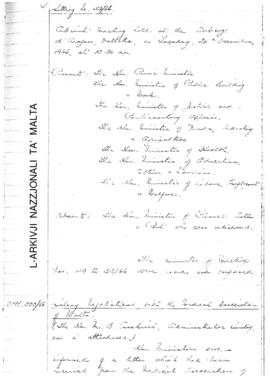 Sitting No. 53/66
Cabinet Meeting held at the Auberge
d'Aragon, Valletta, on Tuesday, 20th December,
1966, at 10.30 am
Present: The Hon. Prime Minister
The Hon. Minister of Public Building
& Works.
The Hon. Minister of Justice and
Parliamentary Affairs.
The Hon. Minister of Trade, Industry
& Agriculture
The Hon. Minister of Health.
The Hon. Minister of Education,
Culture & Tourism.
The Hon. Minister of Labour, Employment
& Welfare.
Absents: The Hon. Minister of Finance, Customs
& Port who was indisposed.
The minutes of Meetings
Nos. 49 to 52/66 were read and confirmed
L-ARKIVJI NAZZJONALI TA' MALTA
Salary Negotiations with the Medical Association
of Malta
(The Hon. M. B. Administrative Secretary,
was in attendance.)
Hon. Ministers were
informed of a letter which had been
received from the Medical Association of